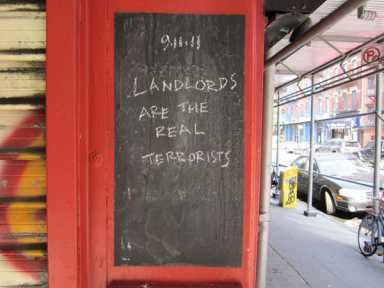 9.11.11
LANDLORDS
ARE THE
REAL
TERRORISTS